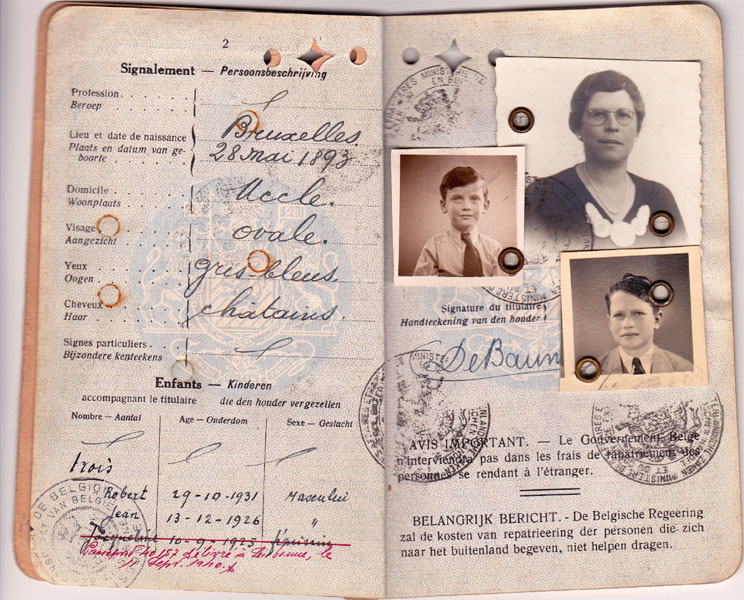 2
Signalement — Persoonsbeschrijving
Profession
Beroep
Lieu et date de naissance
Plaats en datum van ge-
boorte
Bruxelles.
28 mai 1893
Domicile
Woonplaats
Uccle.
Visage
Aangezicht
ovale.
Yeux
Oogen
gris bleus.
Cheveux
Haar
châtains.
Signes particuliers.
Bijzondere kenteekens
Enfants — Kinderen
accompagnant le titulaire die den houder vergezellen
Nombre — Aantal Age — Ouderdom Sexe — Geslacht
trois
Robert 29-10-1931 Masculin
Jean 13-12-1926 "
Jacqueline 10-9-1925 féminin
Passeport délivré à Lisbonne, le
11 Sept. 1940.
DE BELGIQUE
VAN BELGIE
Signature du titulaire
Handteekening van den houder
De Baun
AVIS IMPORTANT. — Le Gouvernement Belge
n'interviendra pas dans les frais de rapatriement des
personnes se rendant à l'étranger.
BELANGRIJK BERICHT. - De Belgische Regeering
zal de kosten van repatrieering der personen die zich
naar het buitenland begeven, niet helpen dragen.